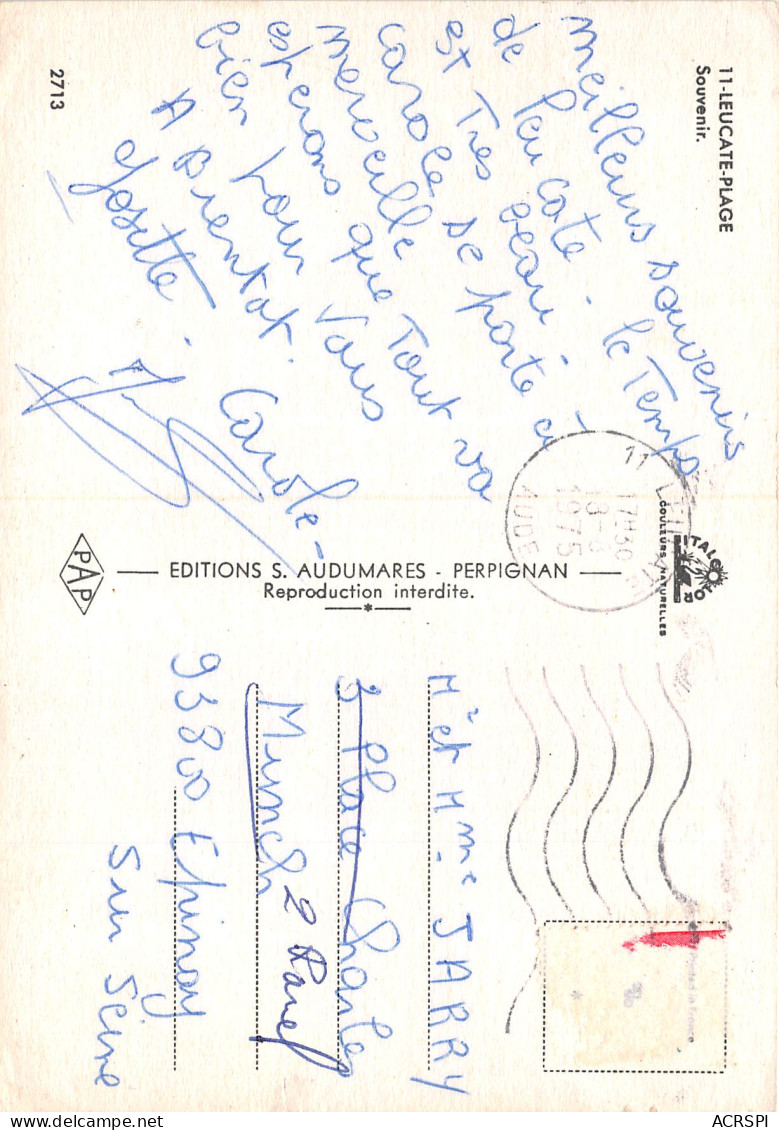 11-LEUCATE-PLAGE
Souvenir.
meilleurs souvenirs
de Leucate. le Temps
est Tres beau.
Carole se porte à
merveille
esperons que Tout va
bien pour Vous
A Bientot.
Josette. Carole-
2713
PAP
EDITIONS S. AUDUMARES - PERPIGNAN
Reproduction interdite.
ITALCOLOR
COULEURS NATURELLES
11 LEUCATE
17H30
18-8
1975
AUDE
Printed in France
Mr et Mme JARRY
3 Place Charles
Munch 2 Ravel
93800 Epinay
Sur Seine
ACRSPI